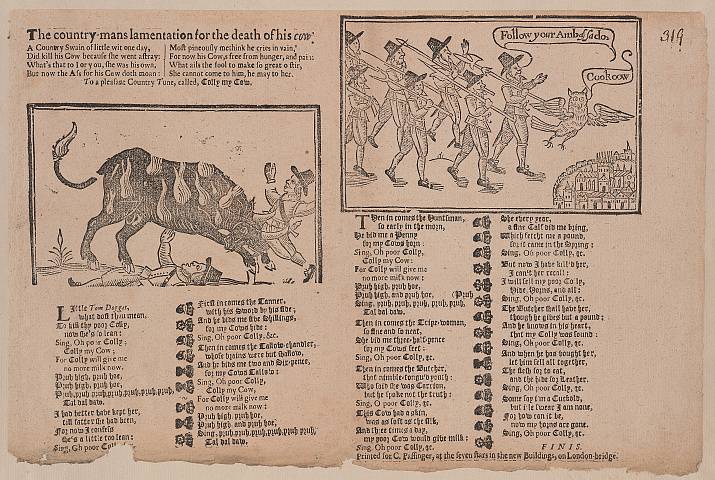 The country-mans lamentation for the death of his cow.
A Country Swain of little wit one day,
Did kill his Cow because she went astray:
What's that to I or you, she was his own,
But now the Ass for his Cow doth moan:
Most pineously methink he cries in vain,
For now his Cow's free from hunger, and pain:
What ails the fool to make so great a stir,
She cannot come to him, he may to her.
To a pleasant Country Tune, called, Colly my Cow.
Follow your Ambassador
Cookoow
319
Little Tom Dogget,
what dost thou mean,
To kill thy poor Colly,
now she's so lean:
Sing, Oh poor Colly;
Colly my Cow;
For Colly will give me
no more milk now.
Pruh high, pruh hoe,
Pruh high, pruh hoe,
Pruh, pruh, pruh, pruh, pruh, pruh,
Tal dal daw.
I had better have kept her,
till fatter she had been,
For now I confess
she's a little too lean:
Sing, Oh poor Coll
First in comes the Tanner,
with his Sword by his side,
And he bids me five Shillings,
for my Cows hide:
Sing, Oh poor Colly, &c.
Then in comes the Tallow-chandler,
whose brains were but shallow,
And he bids me two and Six-pence,
for my Cows Tallow:
Sing, Oh poor Colly,
Colly my Cow,
For Colly will give me
no more milk now:
Pruh high, pruh hoe,
Pruh high, and pruh hoe,
Sing, pruh, pruh, pruh, pruh, pruh,
Tal dal daw.
Then in comes the Huntsman,
so early in the morn,
He bid me a Penny
for my Cows horn:
Sing, Oh poor Colly,
Colly my Cow:
For Colly will give me
no more milk now:
Pruh high, pruh hoe,
Pruh high, and pruh, hoe, (Pruh
Sing, pruh, pruh, pruh, pruh, pruh,
Tal dal daw.
Then in comes the Tripe-woman,
so fine and so neat,
She bid me three-half-pence
for my Cows feet:
Sing, Oh poor Colly, &c.
Then in comes the Butcher,
that nimble-tongu'd youth:
Who said she was Carrion,
but he spoke not the truth:
Sing, O poor Colly, &c.
This Cow had a skin,
was as soft as the silk,
And three times a day,
my poor Cow would give milk:
Sing, Oh poor Colly, &c.
She every year,
a fine Calf did me bring,
Which fetcht me a pound,
for it came in the Spring:
Sing, Oh poor Colly, &c.
But now I have kill'd her,
I can't her recall:
I will sell my poor Colly,
Hide, Horns, and all:
Sing, Oh poor Colly, &c.
The Butcher shall have her,
though he gives but a pound;
And he knows in his heart,
that my Colly was sound:
Sing, Oh poor Colly, &c.
And when he has bought her,
let him sell all together,
The flesh for to eat,
and the hide for Leather.
Sing, Oh poor Colly, &c.
Some say I'm a Cuckold,
but I'le swear I am none,
For how can it be,
now my horns are gone.
Sing, Oh poor Colly, &c.
FINIS.
Printed for C. Passinger, at the seven stars in the new Buildings, on London-bridge.